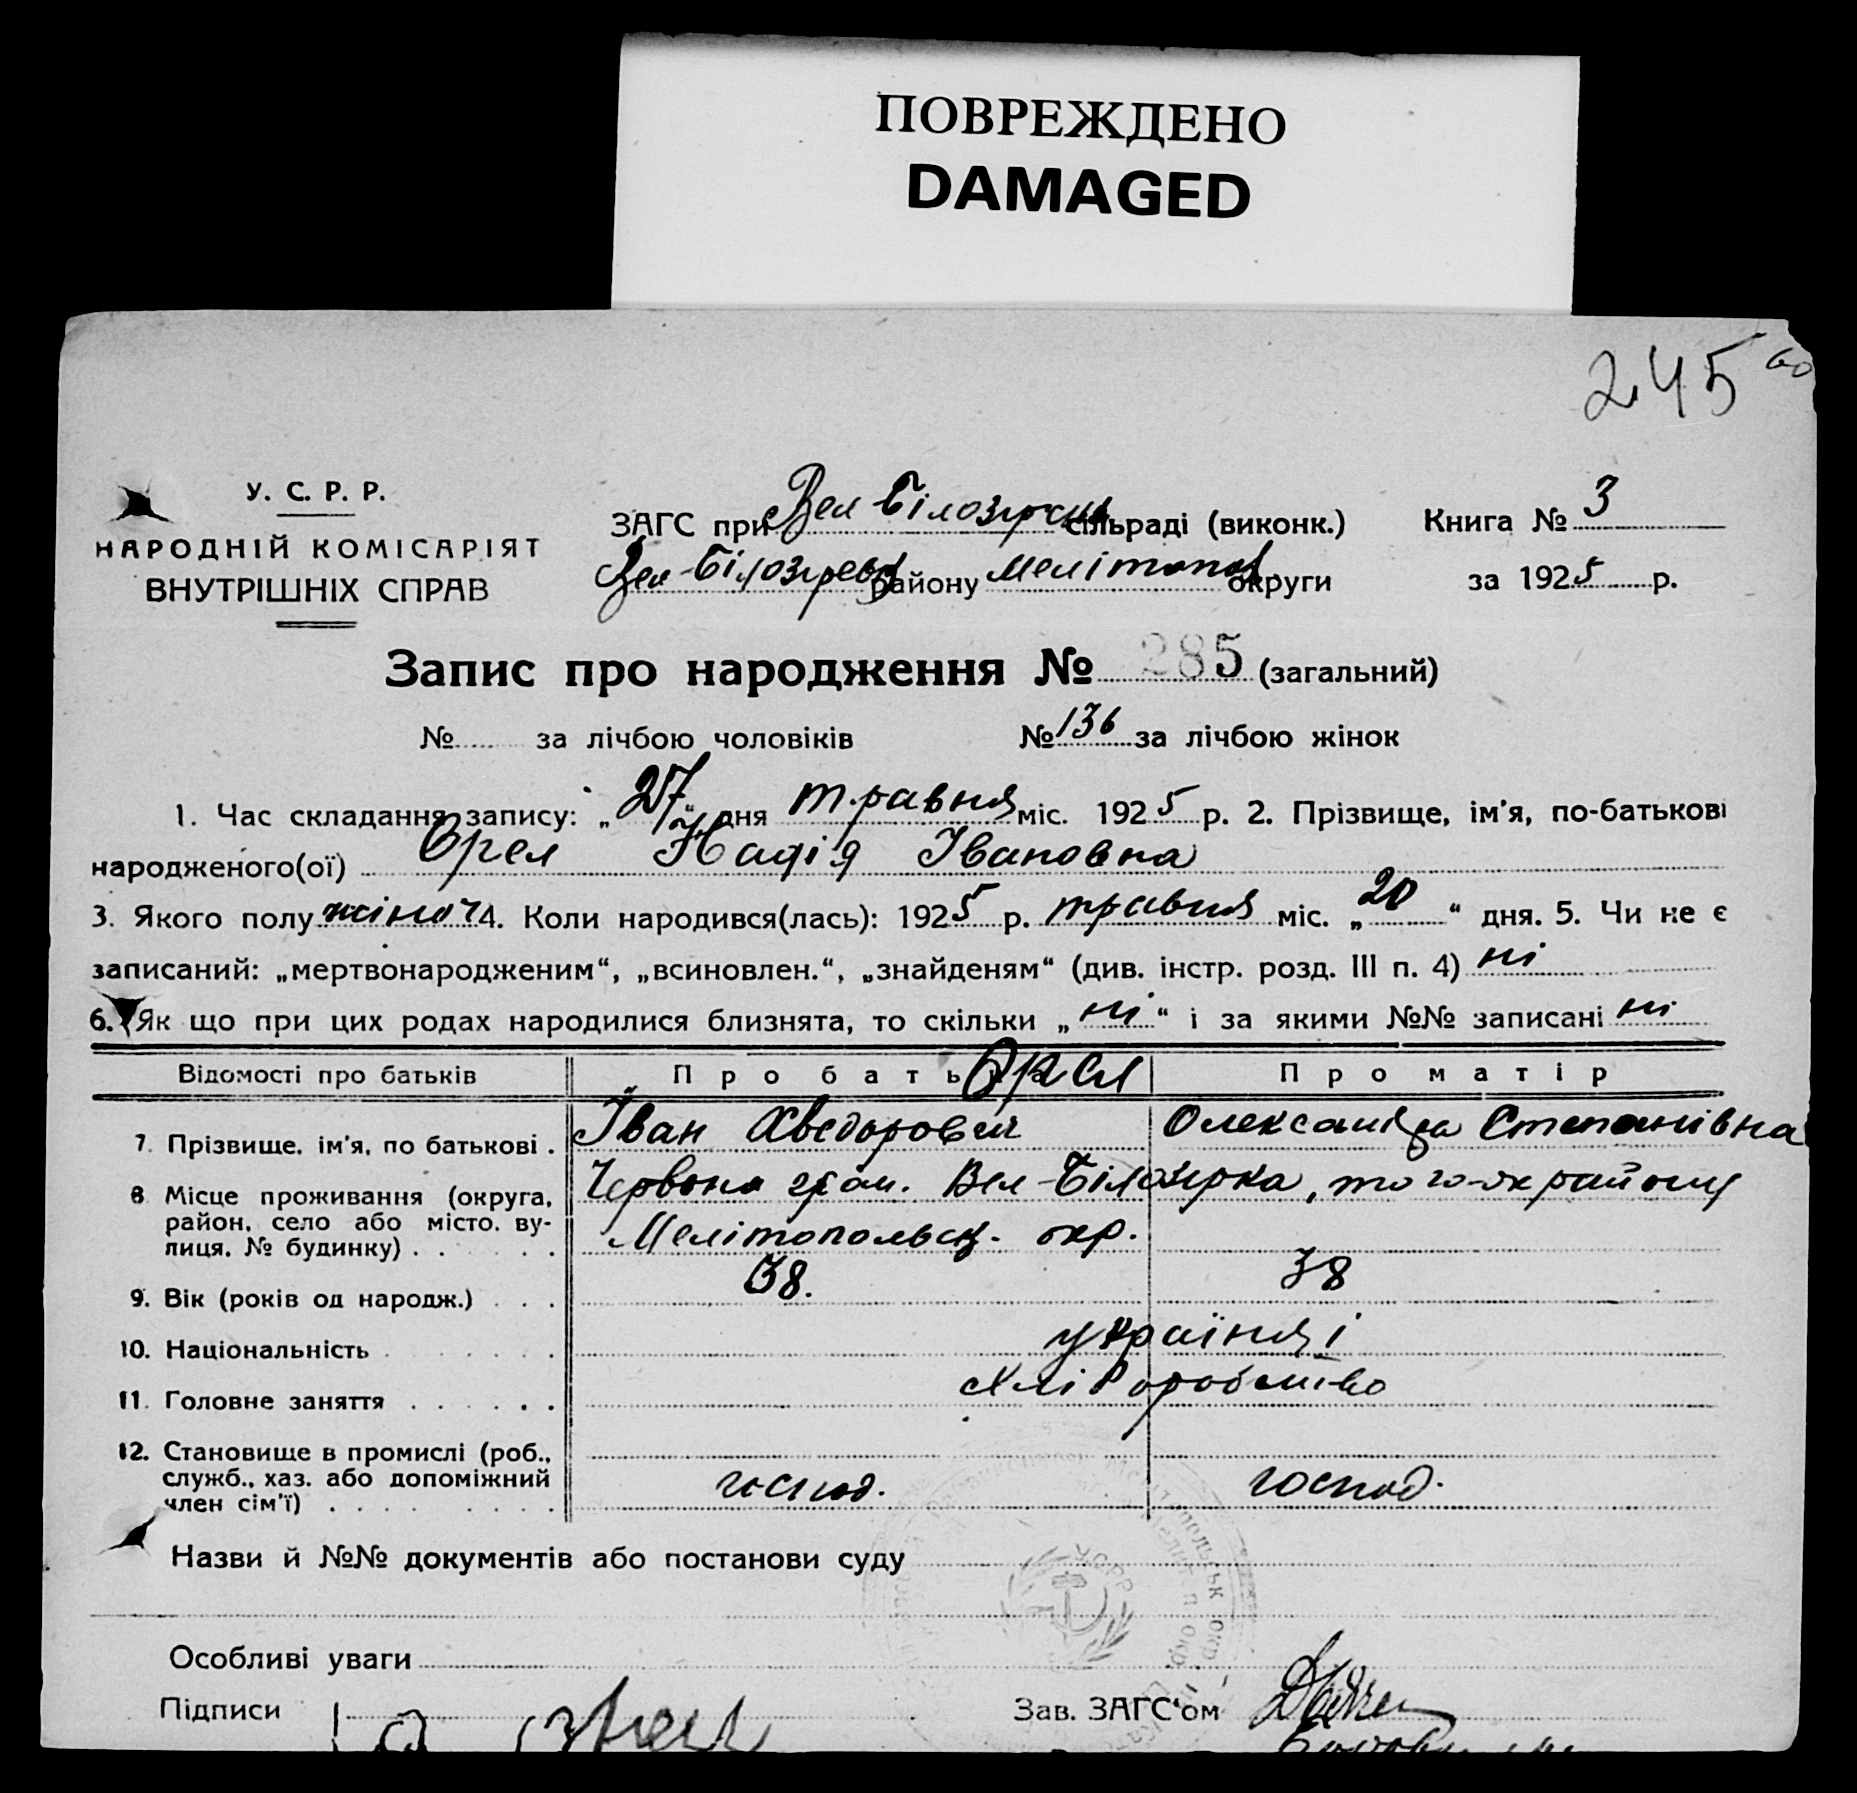 ПОВРЕЖДЕНО
DAMAGED
245
У. С. Р. Р.
НАРОДНІЙ КОМІСАРІЯТ
ВНУТРІШНІХ СПРАВ
ЗАГС при Вел Білозірськ сільраді (виконк.) Книга № 3
Вел-Білозірськ району Мелітопол округи за 1925 р.
Запис про народження № 285 (загальний)
№ за лічбою чоловіків № 136 за лічбою жінок
1. Час складання запису: „27“ дня травня міс. 1925 р. 2. Прізвище, ім'я, по-батькові
народженого(ої) Орел Надія Івановна
3. Якого полу жіноч 4. Коли народився(лась): 1925 р. травня міс. „20“ дня. 5. Чи не є
записаний: „мертвонародженим“, „всиновлен.“, „знайденям“ (див. інстр. розд. III п. 4) ні
6. Як що при цих родах народилися близнята, то скільки „ні“ і за якими №№ записані ні
Відомості про батьків Про бать Орел Про матір
7. Прізвище, ім'я, по батькові . Іван Хведорович Олександра Степанівна
8 Місце проживання (округа, район, село або місто, вулиця, № будинку) . . . . . Червоно гром. Вел-Білозірка, того-ж району
Мелітопольськ. окр.
9. Вік (років од народж.) . . . 38. 38
10. Національність . . . . . українці
11. Головне заняття . . . . . . Хліборобство
12. Становище в промислі (роб., служб., хаз. або допоміжний член сім'ї) . . . . . . господ. господ.
Назви й №№ документів або постанови суду
УСРР
Особливі уваги
Підписи Зав. ЗАГС'ом